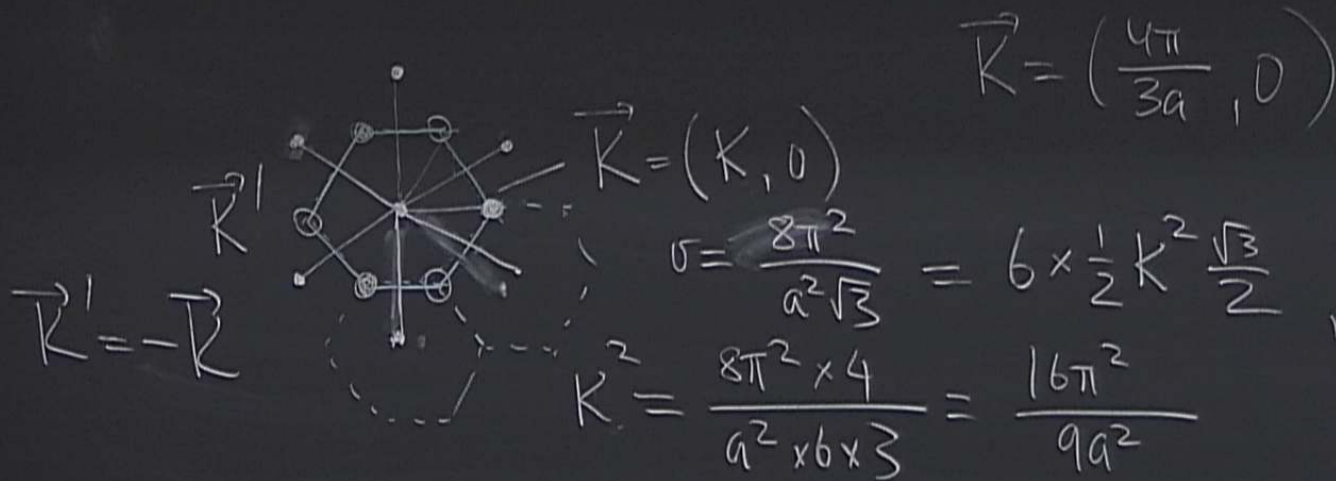 K⃗ = (4π/3a, 0)
K⃗' K⃗ = (K, 0)
σ = 8π²/a²√3 = 6 × 1/2 K² √3/2
K⃗' = -K⃗
K² = 8π² × 4/a² × 6 × 3 = 16π²/9a²